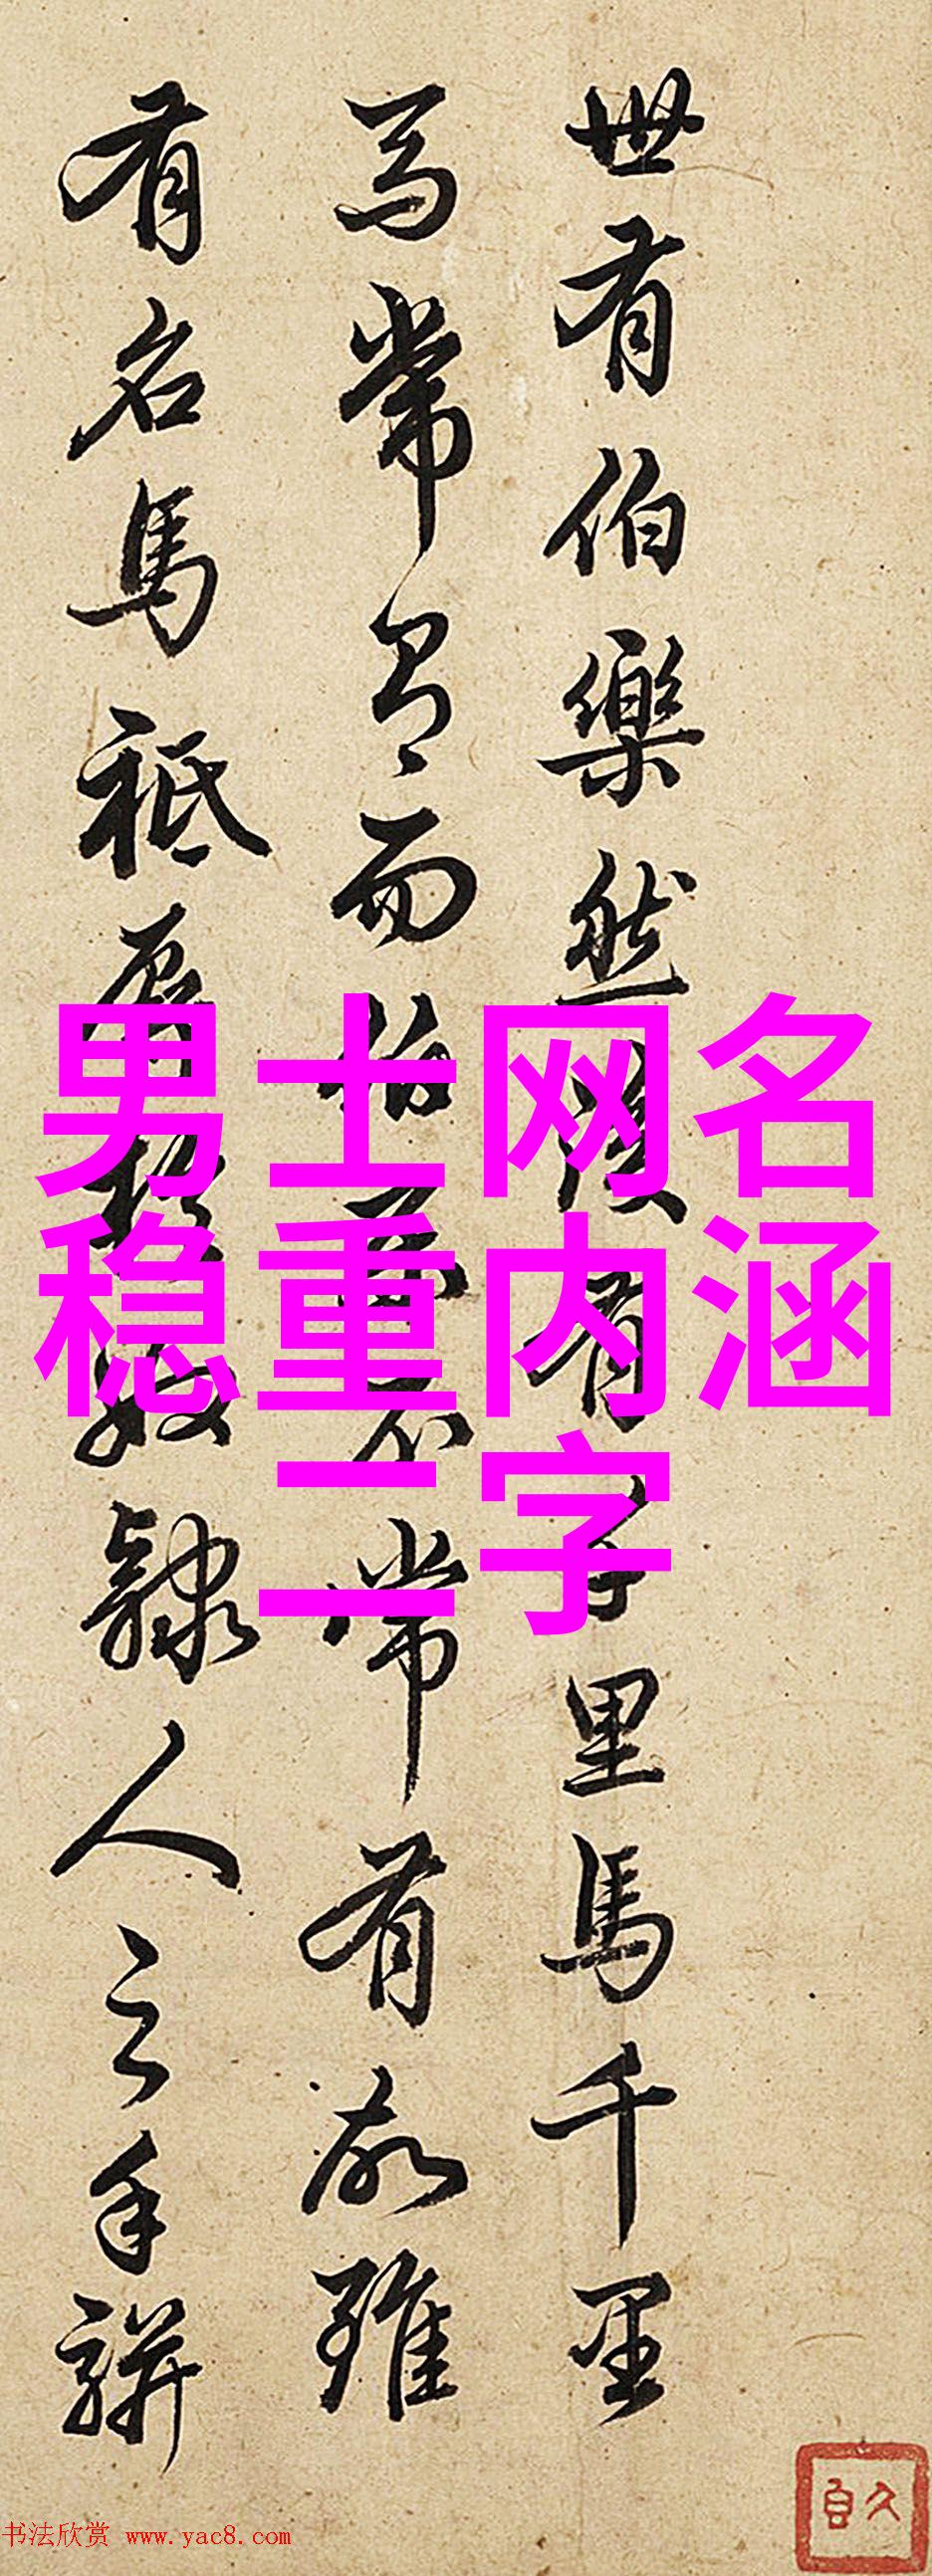 世有伯樂然後有千里馬千里
马常有而伯樂不常有故雖
有名馬祗辱於奴隸人之手駢
男士网名
稳重内涵
二字
书法欣赏 www.yac8.com